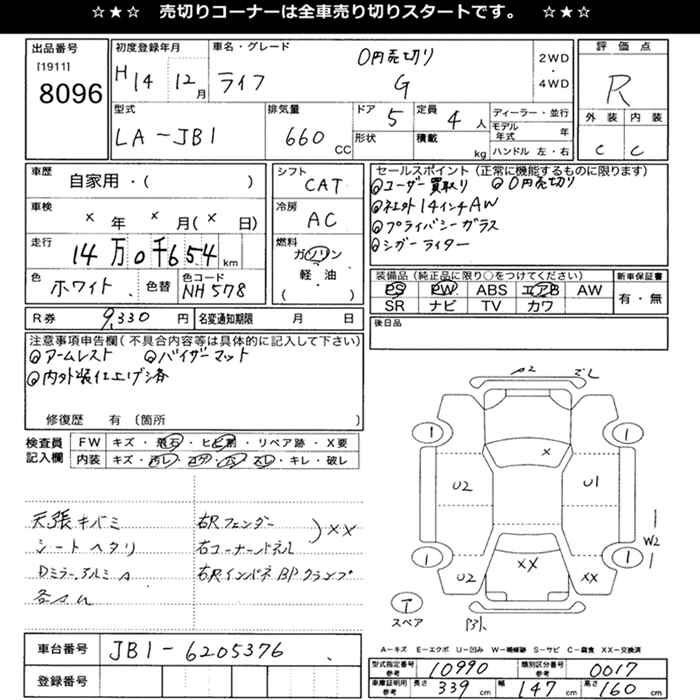 ☆★☆ 売切りコーナーは全車売り切りスタートです。 ☆★☆
出品番号
[1911]
8096
初度登録年月
H14 12月
車名・グレード
ライフ
0円売切り
G
2WD
・
4WD
評価点
R
外装 内装
C C
型式
LA-JB1
排気量
660 CC
ドア 5
形状
定員 4 人
積載 kg
ディーラー・並行
モデル年式 年
ハンドル 左・右
車歴
自家用・( )
車検
× 年 × 月 (× 日)
走行
14万0千654 km
色
ホワイト 色替
色コード
NH578
シフト
CAT
冷房
AC
燃料
ガソリン
軽・油
( )
セールスポイント(正常に機能するものに限ります)
◎ユーザー買取り ◎0円売切り
◎社外14インチAW
◎プライバシーガラス
◎シガーライター
装備品(純正品に限り○をつけてください)
PS PW ABS エアB AW
SR ナビ TV カワ
新車保証書
有・無
R券 9,330 円
名変通知期限 月 日
後日品
注意事項申告欄(不具合内容等は具体的に記入して下さい)
◎アームレスト ◎バイザーマット
◎内外装仕上げ済
修復歴 有(箇所 )
検査員
記入欄
FW キズ・飛石・ヒビ割・リペア跡・X要
内装 キズ・汚レ・コゲ・穴・スレ・キレ・破レ
天張キバミ
シートヘタリ
Dミラー,アルミA
各A,U
右Rフェンダー
右コーナーパネル
)××
右RインパネBPクランプ
A2
1
1
×
U2
U1
W2
1
1
U2
××
××
T
スペア
A-キズ E-エクボ U-凹み W-補修跡 S-サビ C-腐食 XX-交換済
車台番号
JB1-6205376
登録番号
型式指定番号
参考
10990
類別区分番号
参考
0017
車庫証明用
参考
長さ 339 cm 幅 147 cm 高さ 160 cm